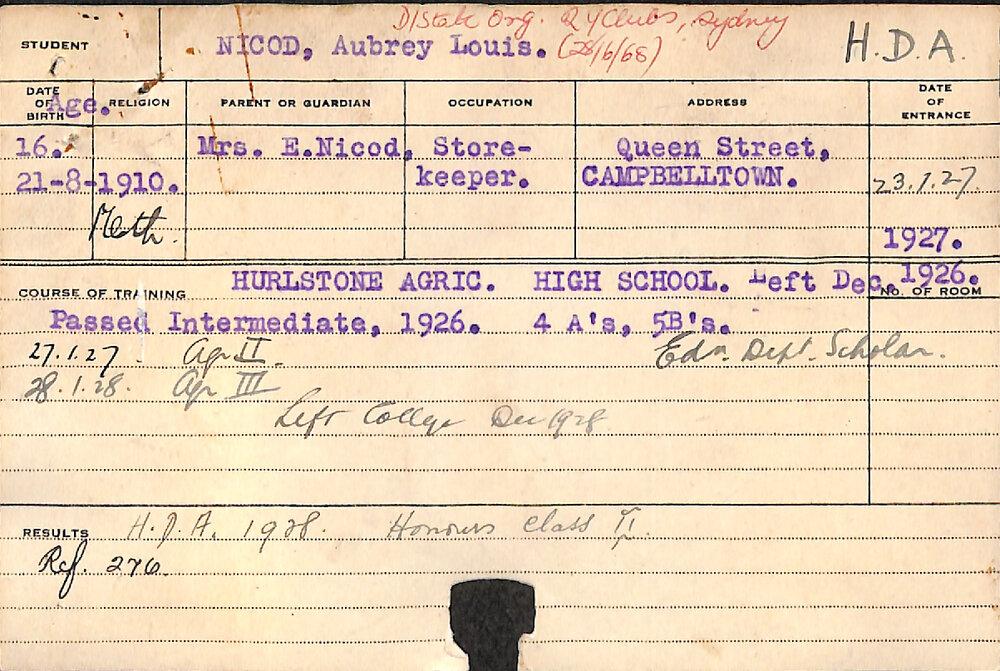 D/State Org. Clubs, Sydney
STUDENT NICOD, Aubrey Louis. (28/6/68) H.D.A.
DATE OF BIRTH Age. RELIGION PARENT OR GUARDIAN OCCUPATION ADDRESS DATE OF ENTRANCE
16. Mrs. E.Nicod, Store- Queen Street,
21-8-1910. keeper. CAMPBELLTOWN. 23.1.27.
Meth. 1927.
HURLSTONE AGRIC. HIGH SCHOOL. Left Dec. 1926.
COURSE OF TRAINING NO. OF ROOM
Passed Intermediate, 1926. 4 A's, 5B's.
27.1.27 Agr II Edn. Dept. Scholar.
28.1.28. Agr III
Left College Dec 1928
RESULTS H.D.A. 1928. Honours Class II.
Ref. 276.